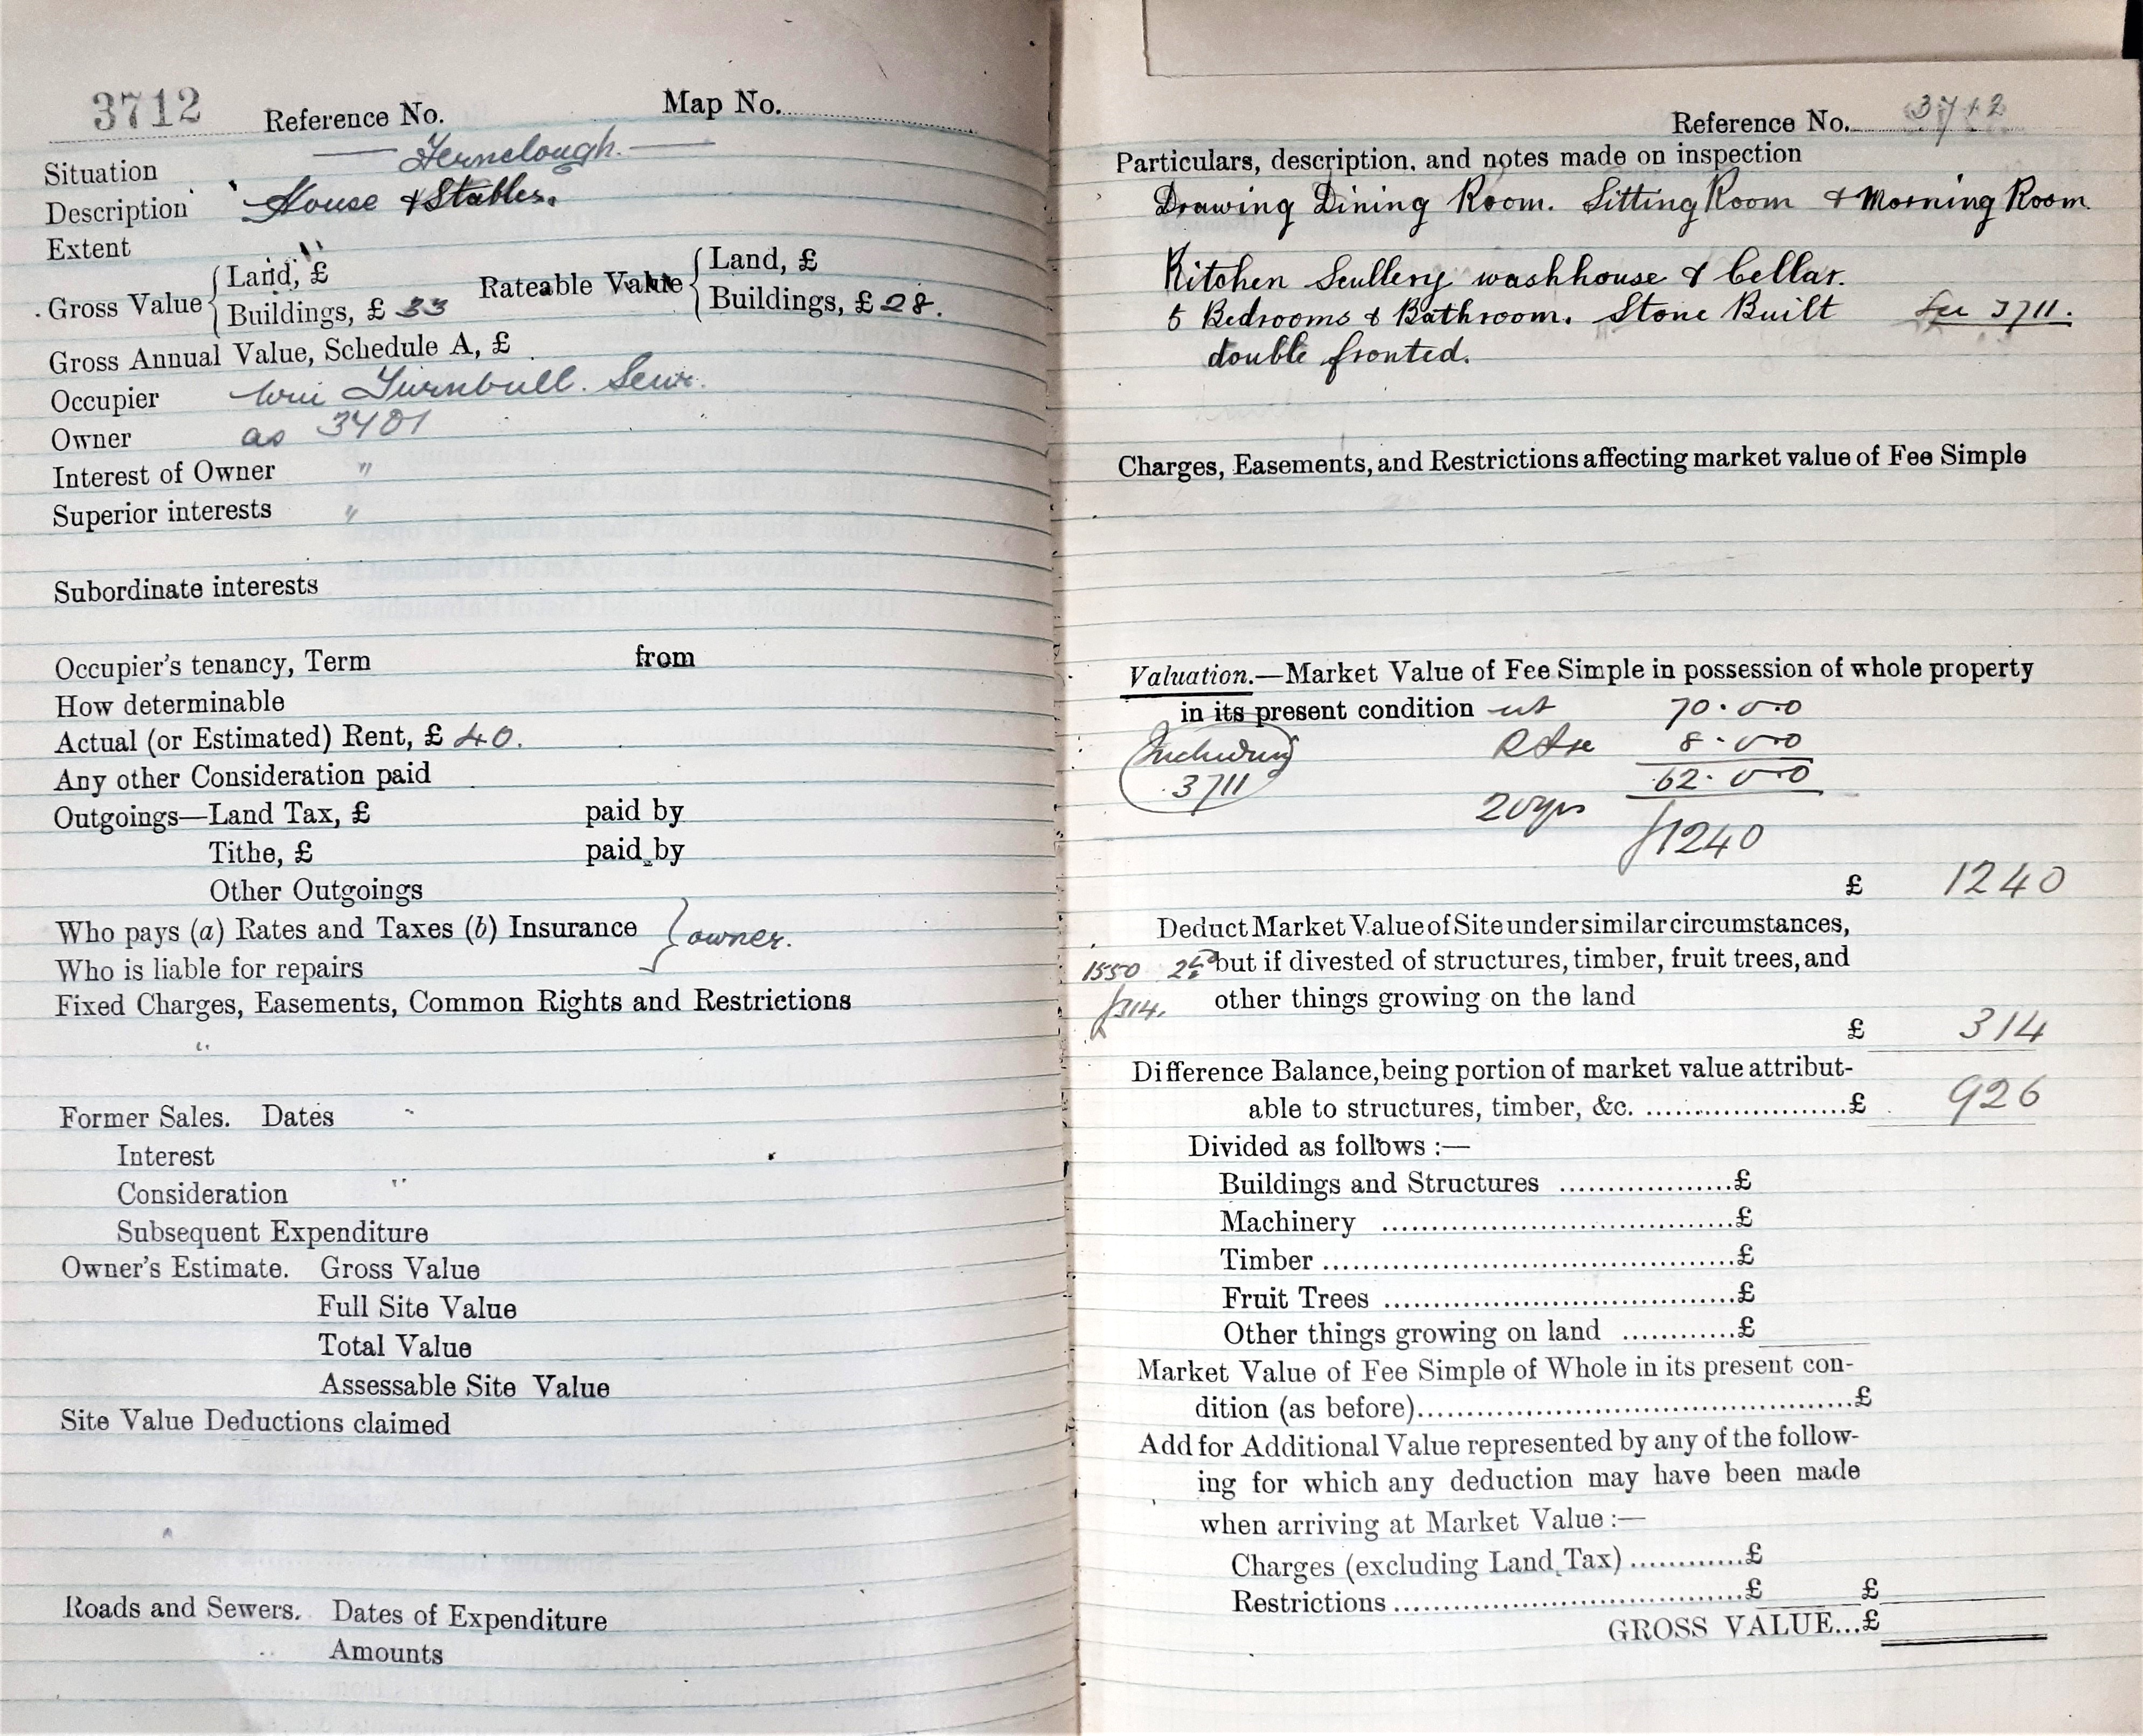 3712 Reference No. Map No.
Situation Fernclough.
Description House & Stables.
Extent
Gross Value { Land, £
Buildings, £ 33
Rateable Value { Land, £
Buildings, £ 28.
Gross Annual Value, Schedule A, £
Occupier Wm Turnbull. Senr.
Owner as 3401
Interest of Owner "
Superior interests "
Subordinate interests
Occupier's tenancy, Term from
How determinable
Actual (or Estimated) Rent, £ 40.
Any other Consideration paid
Outgoings—Land Tax, £ paid by
Tithe, £ paid by
Other Outgoings
Who pays (a) Rates and Taxes (b) Insurance } owner.
Who is liable for repairs
Fixed Charges, Easements, Common Rights and Restrictions
Former Sales. Dates
Interest
Consideration
Subsequent Expenditure
Owner's Estimate. Gross Value
Full Site Value
Total Value
Assessable Site Value
Site Value Deductions claimed
Roads and Sewers. Dates of Expenditure
Amounts
Reference No. 3712
Particulars, description, and notes made on inspection
Drawing Dining Room. Sitting Room & Morning Room
Kitchen Scullery washhouse & Cellar.
5 Bedrooms & Bathroom. Stone Built See 3711.
double fronted.
Charges, Easements, and Restrictions affecting market value of Fee Simple
Valuation.—Market Value of Fee Simple in possession of whole property
in its present condition 70.0.0
Including 8.0.0
3711 62.0.0
20 yrs £1240
£ 1240
Deduct Market Value of Site under similar circumstances,
1550 but if divested of structures, timber, fruit trees, and
£314. other things growing on the land
£ 314
Difference Balance, being portion of market value attribut-
able to structures, timber, &c. ......................£ 926
Divided as follows :—
Buildings and Structures ..................£
Machinery ....................................£
Timber..........................................£
Fruit Trees ....................................£
Other things growing on land ............£
Market Value of Fee Simple of Whole in its present con-
dition (as before)..............................................£
Add for Additional Value represented by any of the follow-
ing for which any deduction may have been made
when arriving at Market Value :—
Charges (excluding Land Tax) ............£
Restrictions ....................................£ £
GROSS VALUE...£